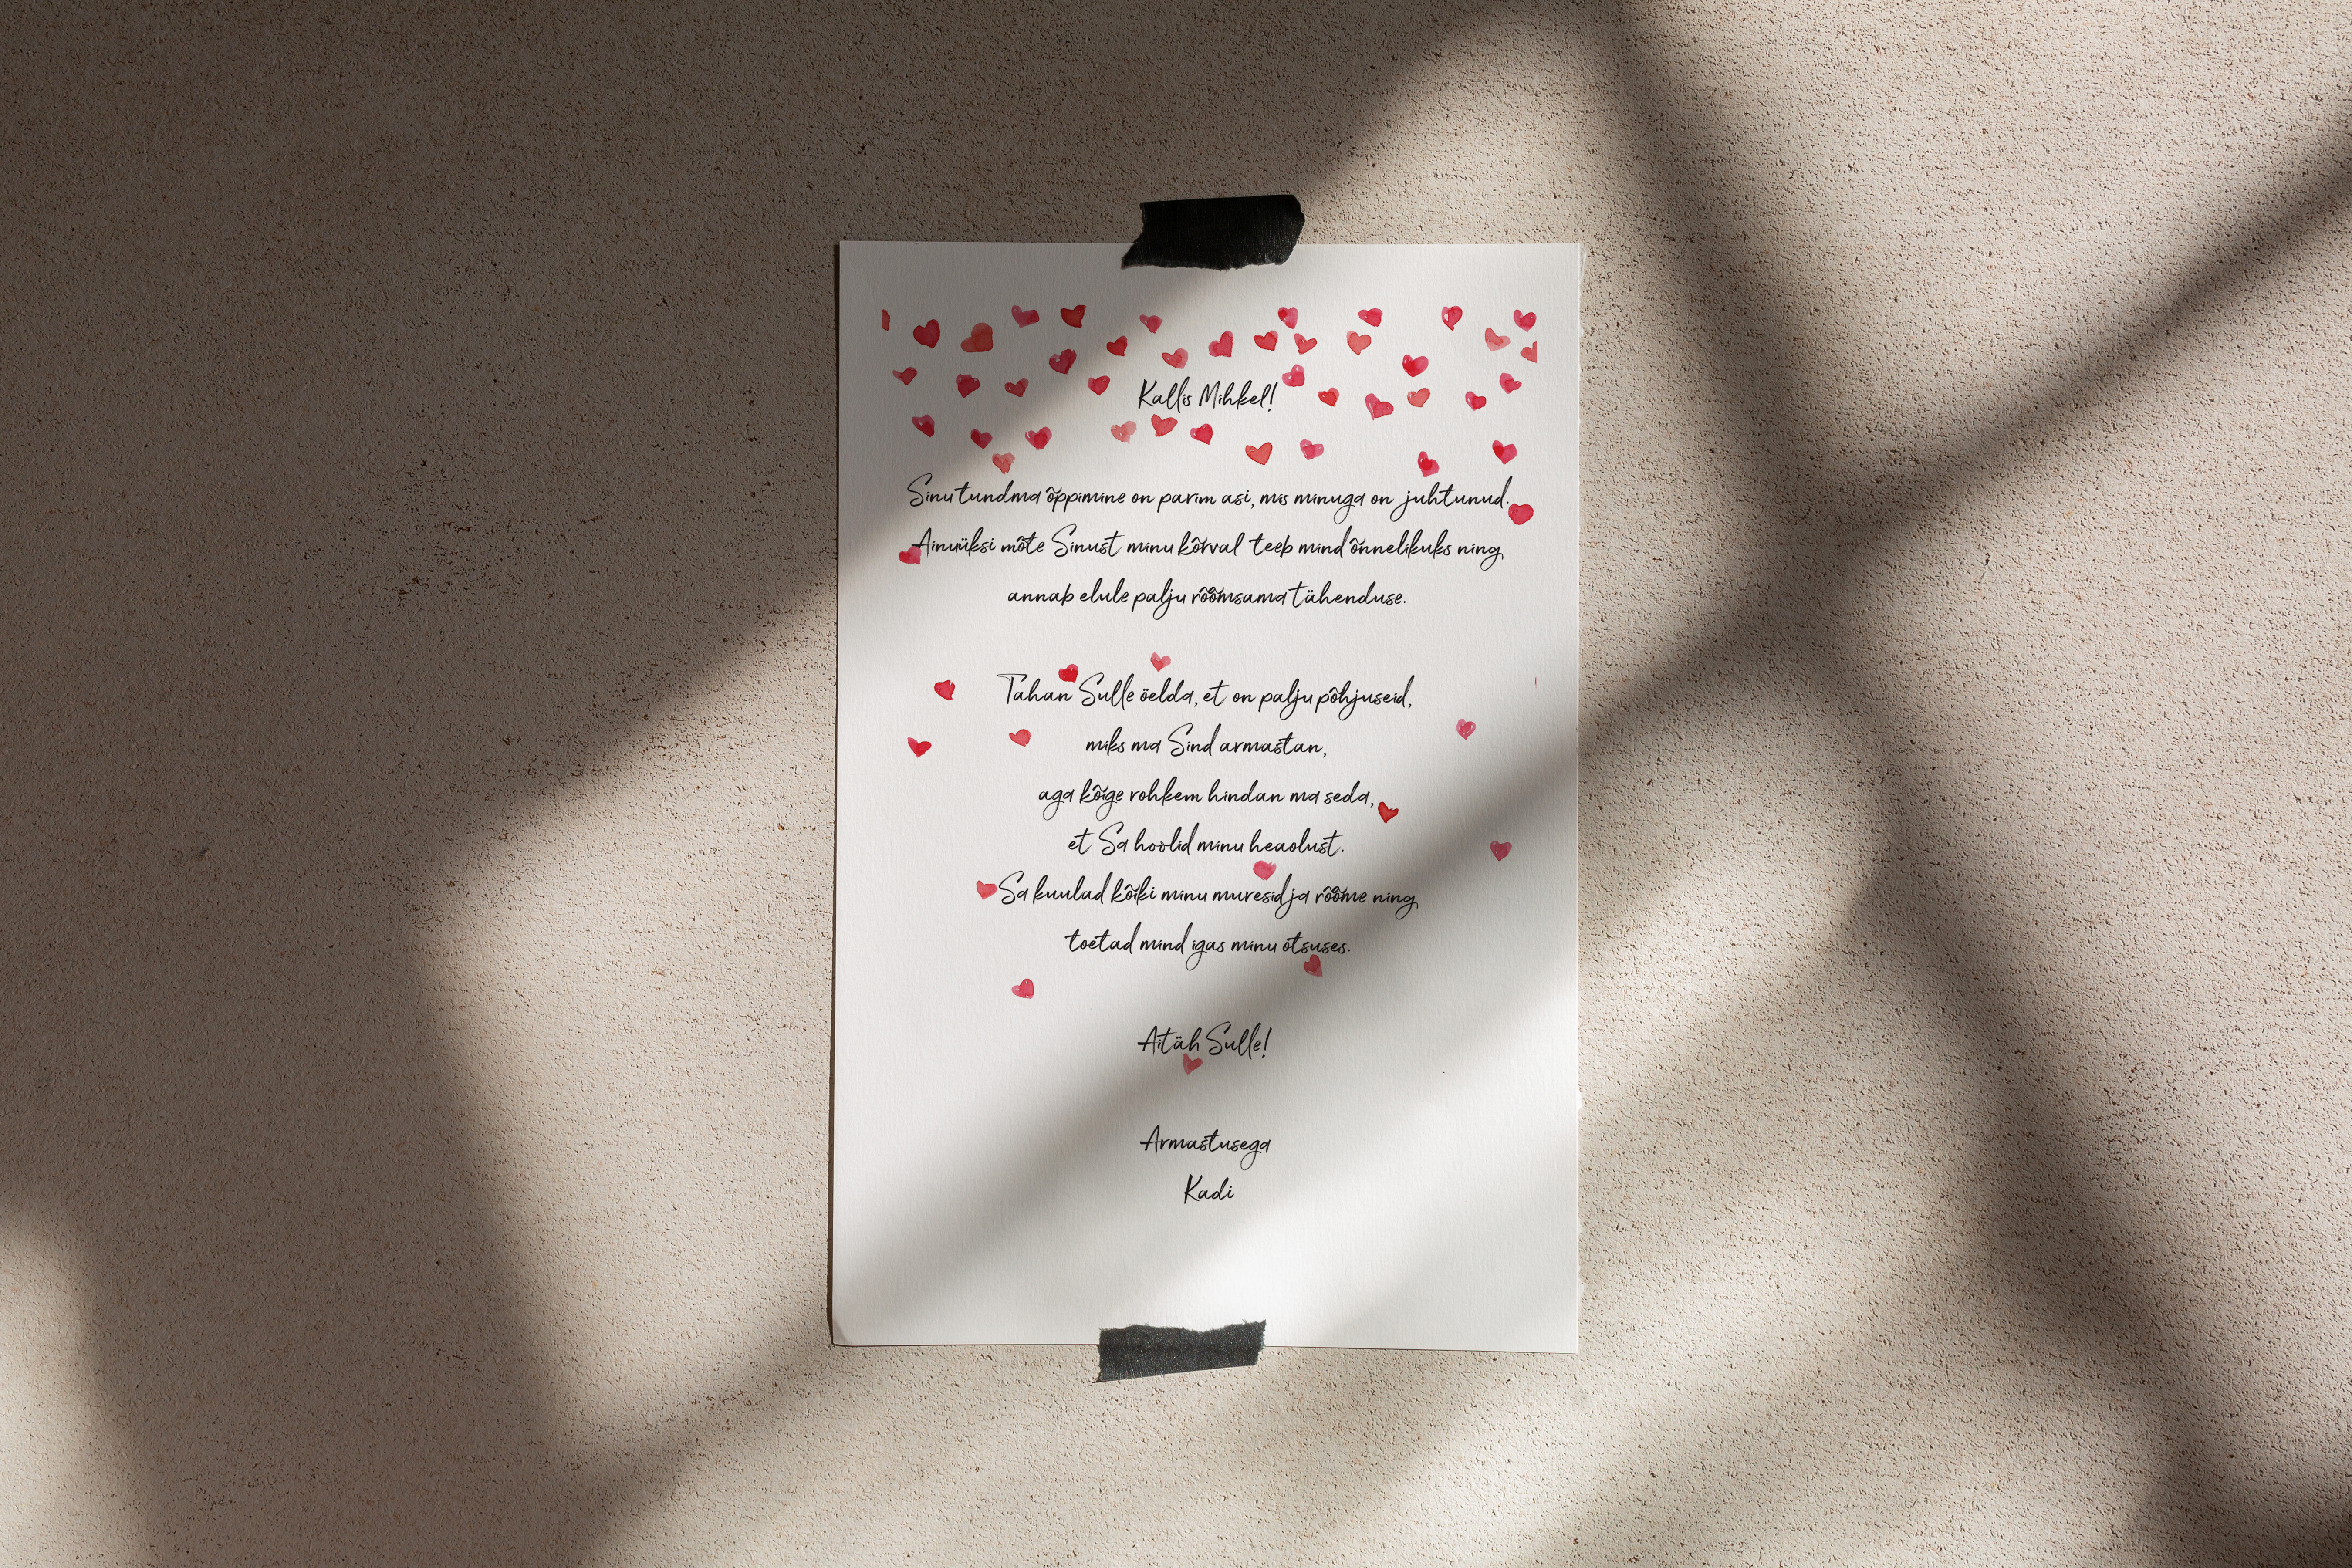 Kallis Mihkel!
Sinu tundma õppimine on parim asi, mis minuga on juhtunud.
Ainuüksi mõte Sinust minu kõrval teeb mind õnnelikuks ning
annab elule palju rõõmsama tähenduse.
Tahan Sulle öelda, et on palju põhjuseid,
miks ma Sind armastan,
aga kõige rohkem hindan ma seda,
et Sa hoolid minu heaolust.
Sa kuulad kõiki minu muresid ja rõõme ning
toetad mind igas minu otsuses.
Aitäh Sulle!
Armastusega
Kadi